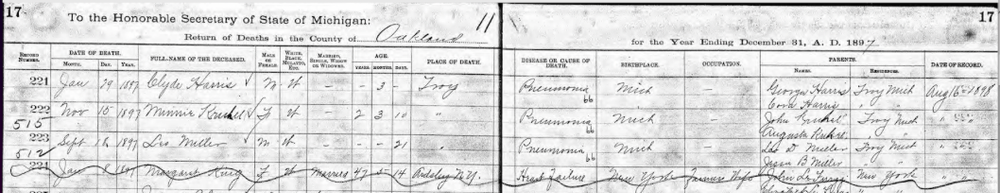 17 To the Honorable Secretary of State of Michigan: 11 17
Return of Deaths in the County of Oakland for the Year Ending December 31, A. D. 1897
RECORD NUMBER. DATE OF DEATH. FULL NAME OF THE DECEASED. MALE OR FEMALE. WHITE, BLACK, MULATTO, ETC. MARRIED, SINGLE, WIDOW OR WIDOWER. AGE. PLACE OF DEATH. DISEASE OR CAUSE OF DEATH. BIRTHPLACE. OCCUPATION. PARENTS. DATE OF RECORD.
MONTH. DAY. YEAR. YEARS. MONTHS. DAYS. NAMES. RESIDENCES.
221 Jan 29 1897 Clyde Harris M W - - 3 - Troy Pneumonia 66 Mich - George Harris Troy Mich Aug 16 1898
Cora Harris " "
222 Nov 15 1897 Minnie F W - 2 3 10 " Pneumonia 66 Mich - John Troy Mich " "
515 Augusta
223 Sept 18 1897 Leo Miller M W - - - 21 " Pneumonia 66 Mich - Leo D Miller Troy Mich " "
512 B Miller " "
224 Jan 8 1897 Margaret King F W Married 47 5 14 Ardsley N.Y. Heart Failure New York Farmers Wife John New York " "